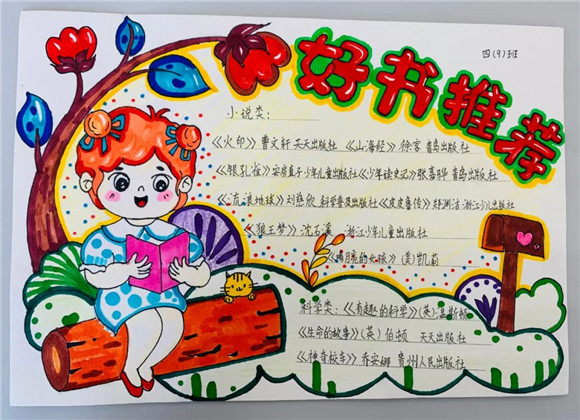 四(9)班
好书推荐
小说类：
《火印》曹文轩 天天出版社 《山海经》徐客 青岛出版社
《银孔雀》安房直子 少年儿童出版社 《少年读史记》张嘉骅 青岛出版社
《流浪地球》刘慈欣 科学普及出版社 《皮皮鲁传》郑渊洁 浙江少儿出版社
《狼王梦》沈石溪 浙江少年儿童出版社
《喝月亮的女孩》(美)凯莉
科学类：《有趣的科学》(英)
《生命的故事》(英)伯顿 天天出版社
《神奇校车》乔安娜 贵州人民出版社